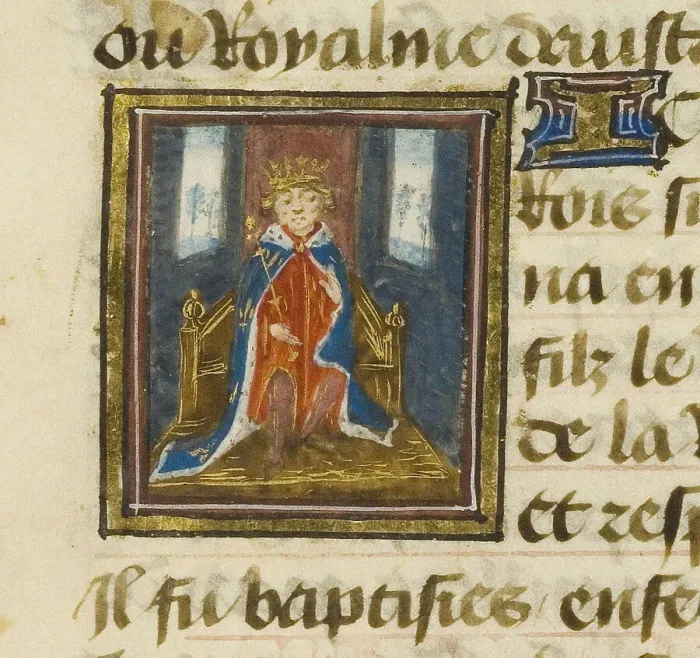 ou Royalme daust
Rois si
na en
filz le
de la
Et resp
Il fu baptisies / enfe